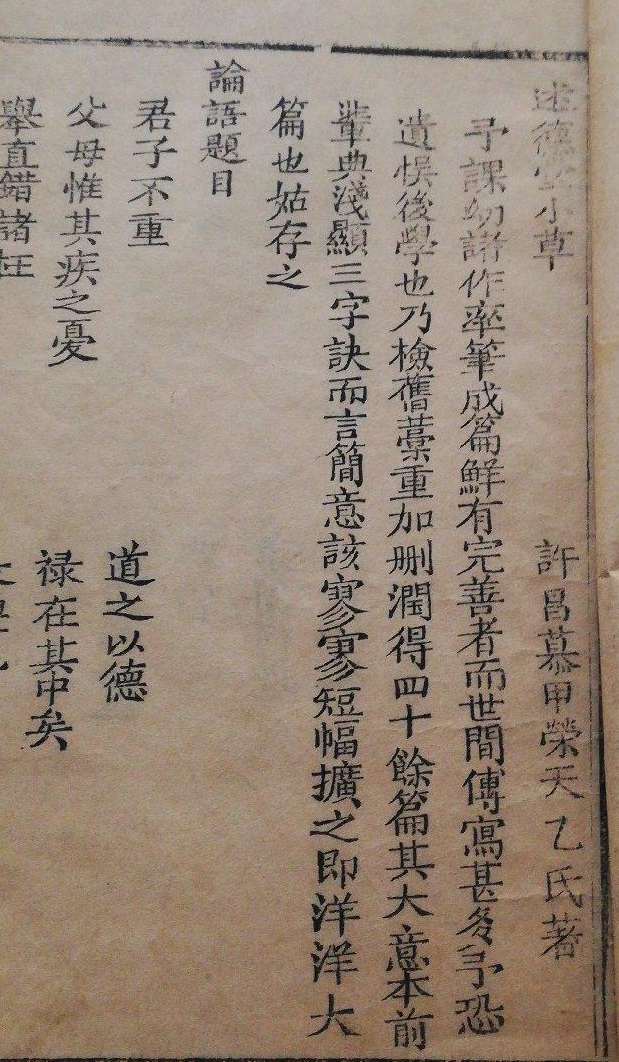 述德堂小草
許昌慕甲榮天乙氏著
予課幼諸作率筆成篇鮮有完善者而世間傳寫甚多予恐
遺悞後學也乃檢舊藁重加刪潤得四十餘篇其大意本前
輩典淺顯三字訣而言簡意該寥寥短幅擴之即洋洋大
篇也姑存之
論語題目
君子不重
道之以德
父母惟其疾之憂
禄在其中矣
舉直錯諸枉